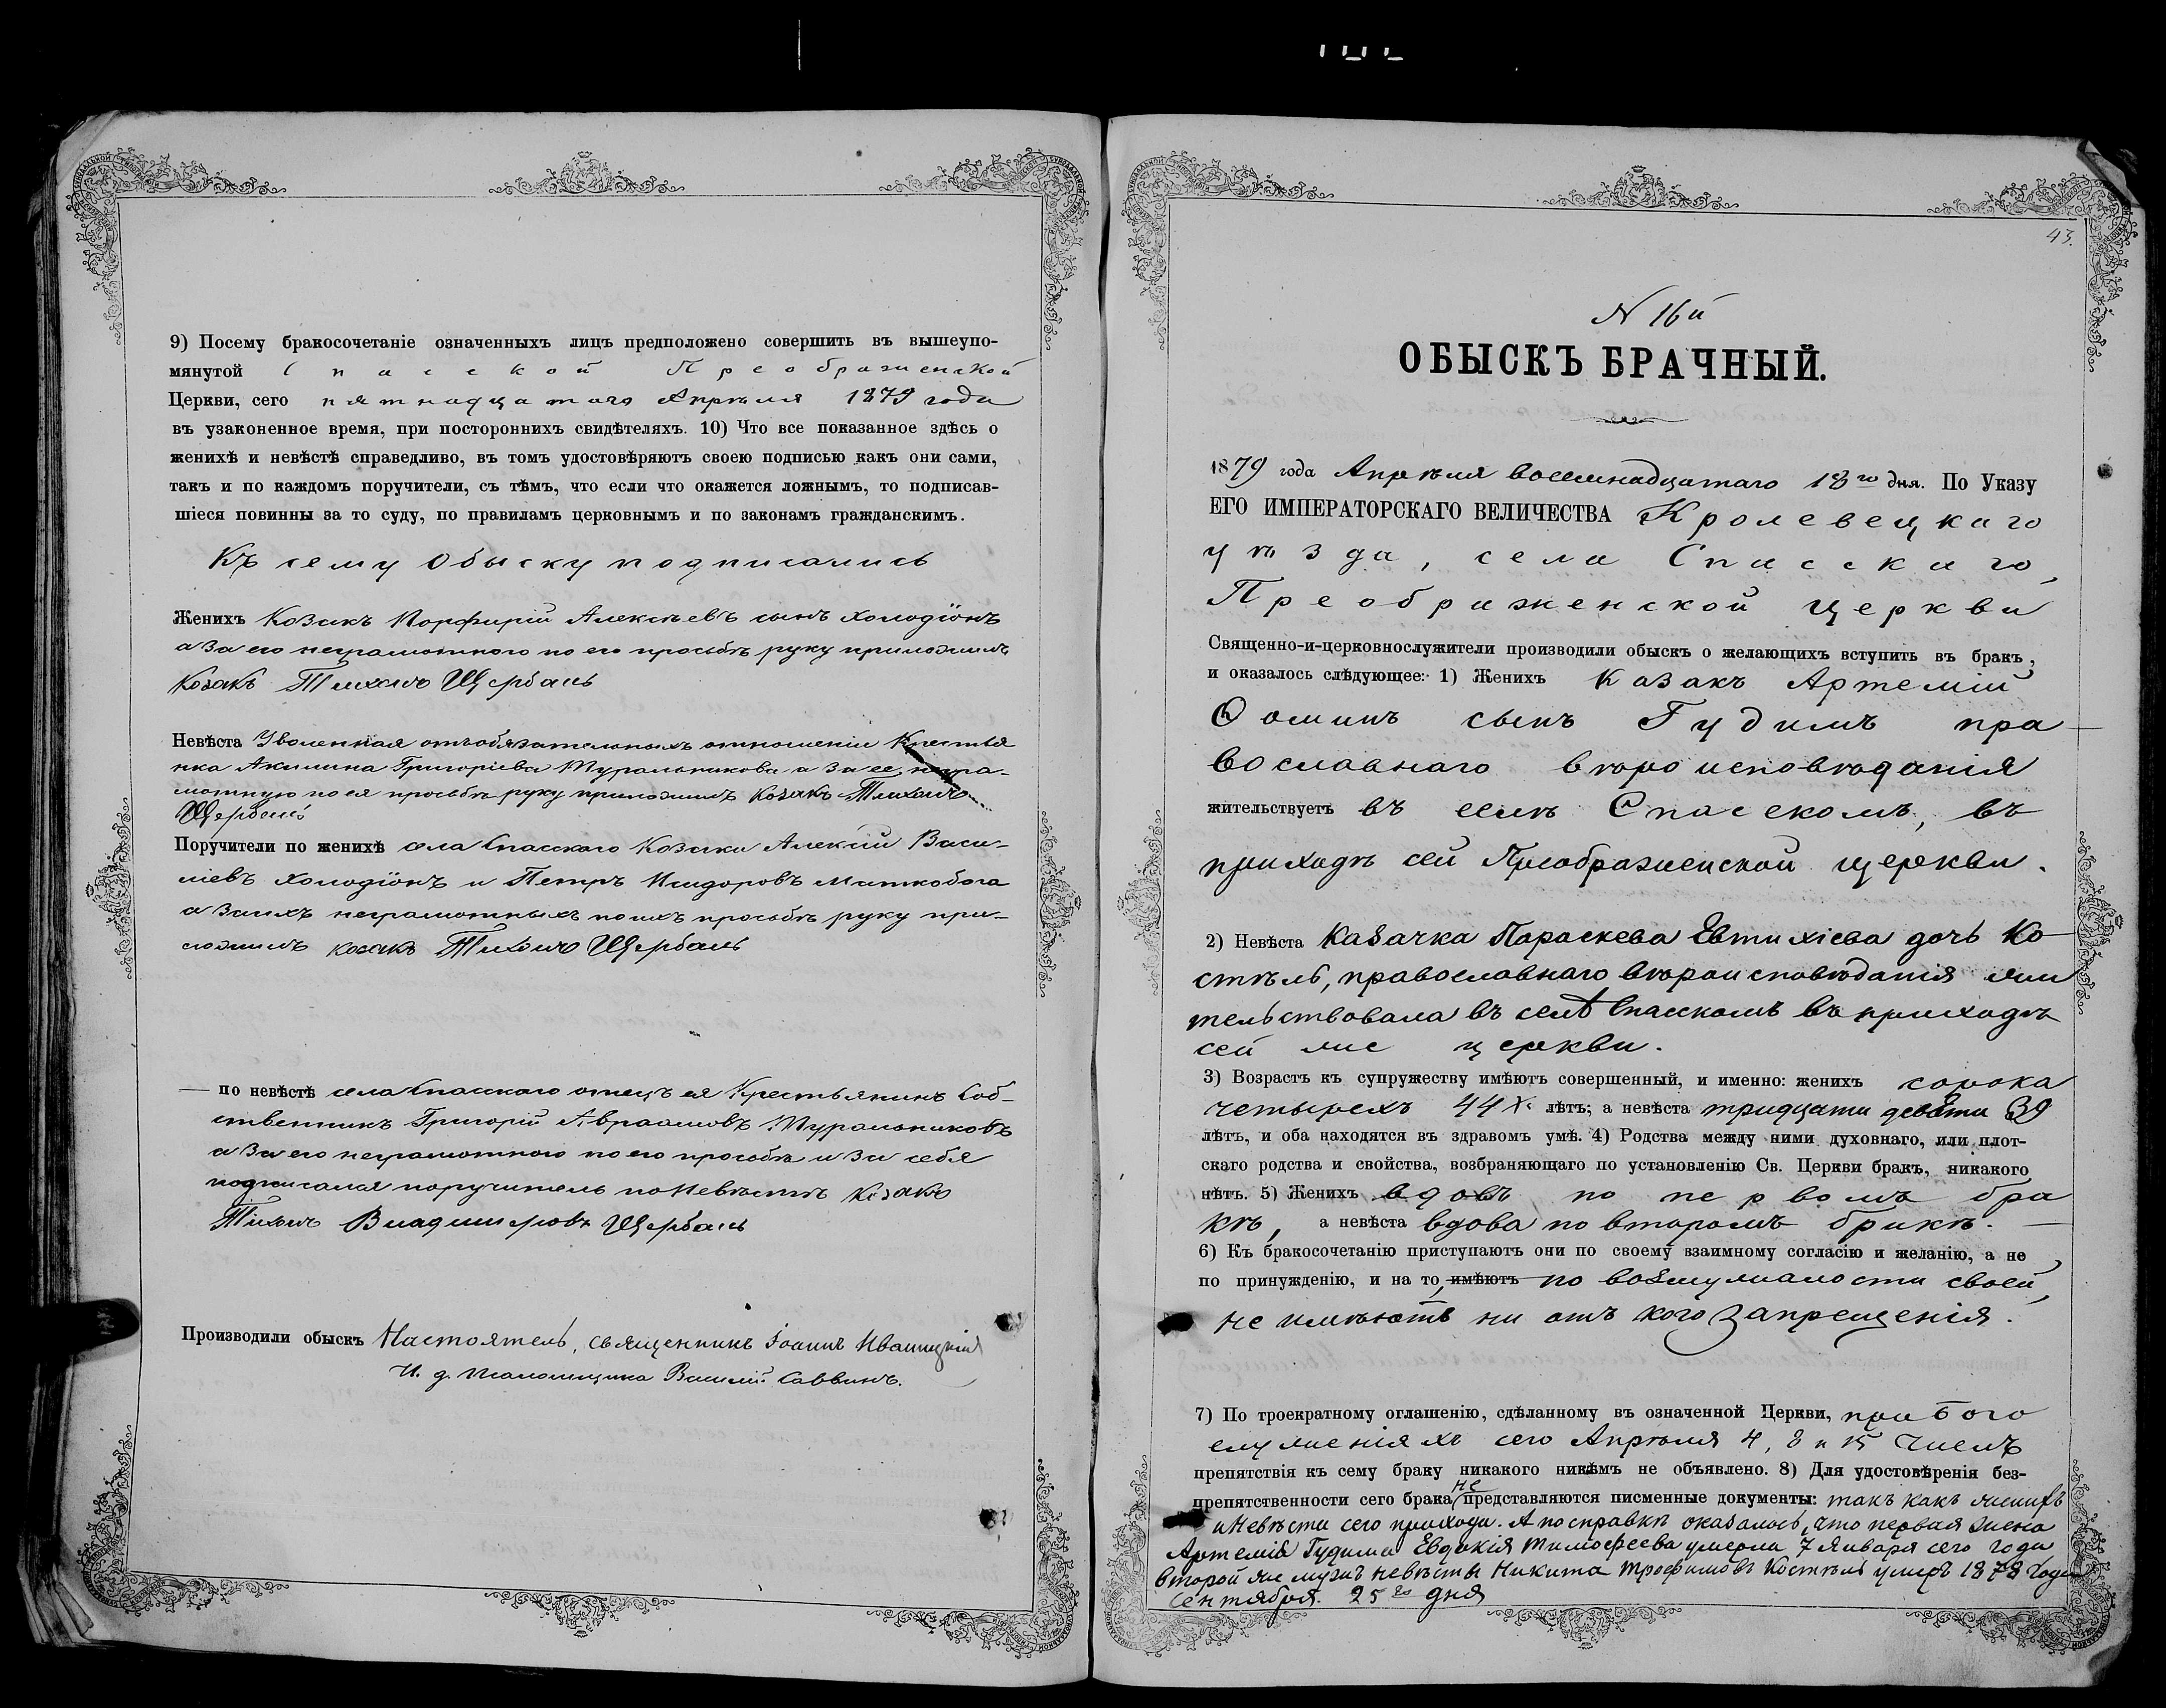 9) Посему бракосочетаніе означенныхъ лицъ предположено совершить въ вышеупо-
мянутой Спасской Преображенской
Церкви, сего пятнадцатаго Апрѣля 1879 года
въ узаконенное время, при постороннихъ свидѣтеляхъ. 10) Что все показанное здѣсь о
женихѣ и невѣстѣ справедливо, въ томъ удостовѣряютъ своею подписью какъ они сами,
такъ и по каждомъ поручители, съ тѣмъ, что если что окажется ложнымъ, то подписав-
шіеся повинны за то суду, по правиламъ церковнымъ и по законамъ гражданскимъ.
Къ сему обыску подписались
Женихъ Козакъ Порфирій Алексѣевъ сынъ Холодіонъ
а за его неграмотного по его просьбѣ руку приложилъ
Козакъ Тихонъ Щербань
Невѣста Уволенная отъ обязательныхъ отношеній Крестья
нка Акилина Григоріева Муральникова а за ее негра-
мотную по ея просьбѣ руку приложилъ Козакъ Тихонъ
Щербань
Поручители по женихѣ села Спасского Козаки Алексій Васи-
ліевъ Холодіонъ и Петръ Исидоровъ Маткобога
а за ихъ неграмотныхъ по ихъ просьбѣ руку при-
ложилъ козакъ Тихонъ Щербань
— по невѣстѣ села Спасского отецъ ея Крестьянинъ Соб-
ственникъ Григорій Авраамовъ Муральниковъ
а за его неграмотного по его просьбѣ и за себя
подписался поручитель по Невѣстѣ Козакъ
Тихонъ Владимировъ Щербань
Производили обыскъ Настоятель, священникъ Іоаннъ Иваницкій
И. д. Псаломщика Василій Саввинъ.
43.
N 16й
ОБЫСКЪ БРАЧНЫЙ.
1879 года Апрѣля восемнадцатаго 18го дня. По Указу
ЕГО ИМПЕРАТОРСКАГО ВЕЛИЧЕСТВА Кролевецкаго
уѣзда, села Спасскаго,
Преображенской церкви
Священно-и-церковнослужители производили обыскъ о желающихъ вступить въ бракъ,
и оказалось слѣдующее: 1) Женихъ Казакъ Артемій
Ѳоминъ сынъ Гудимъ пра
вославнаго вѣроисповѣданія
жительствуетъ въ селѣ Спасскомъ, въ
приходѣ сей Преображенской церкви.
2) Невѣста Казачка Параскева Евтихіева дочь Ко
стѣль, православнаго вѣроисповѣданія жи
тельствовала въ селѣ Спасскомъ въ приходѣ
сей же церкви.
3) Возрастъ къ супружеству имѣютъ совершенный, и именно: женихъ сорока
четырехъ 44х. лѣтъ; а невѣста тридцати девяти 39
лѣтъ, и оба находятся въ здравомъ умѣ. 4) Родства между ними духовнаго, или плот-
скаго родства и свойства, возбраняющаго по установленію Св. Церкви бракъ, никакого
нѣтъ. 5) Женихъ вдовъ по первомъ бра
кѣ, а невѣста вдова по второмъ бракѣ.
6) Къ бракосочетанію приступаютъ они по своему взаимному согласію и желанію, а не
по принужденію, и на то, имѣютъ по возмужалости своей,
не имѣютъ ни отъ кого запрещенія.
7) По троекратному оглашенію, сдѣланному въ означенной Церкви, при Бого
служеніяхъ сего Апрѣля 4, 8 и 15 числъ
препятствія къ сему браку никакого никѣмъ не объявлено. 8) Для удостовѣренія без-
препятственности сего брака не представляются писменные документы: такъ какъ женихъ
и Невѣста сего прихода. А по справкѣ оказалось, что первая жена
Артемія Гудима Евдокія Тимофеева умерла 7 Января сего года
второй же мужъ невѣсты Никита Трофимовъ Костѣль умеръ 1878 года
Сентября 25го дня